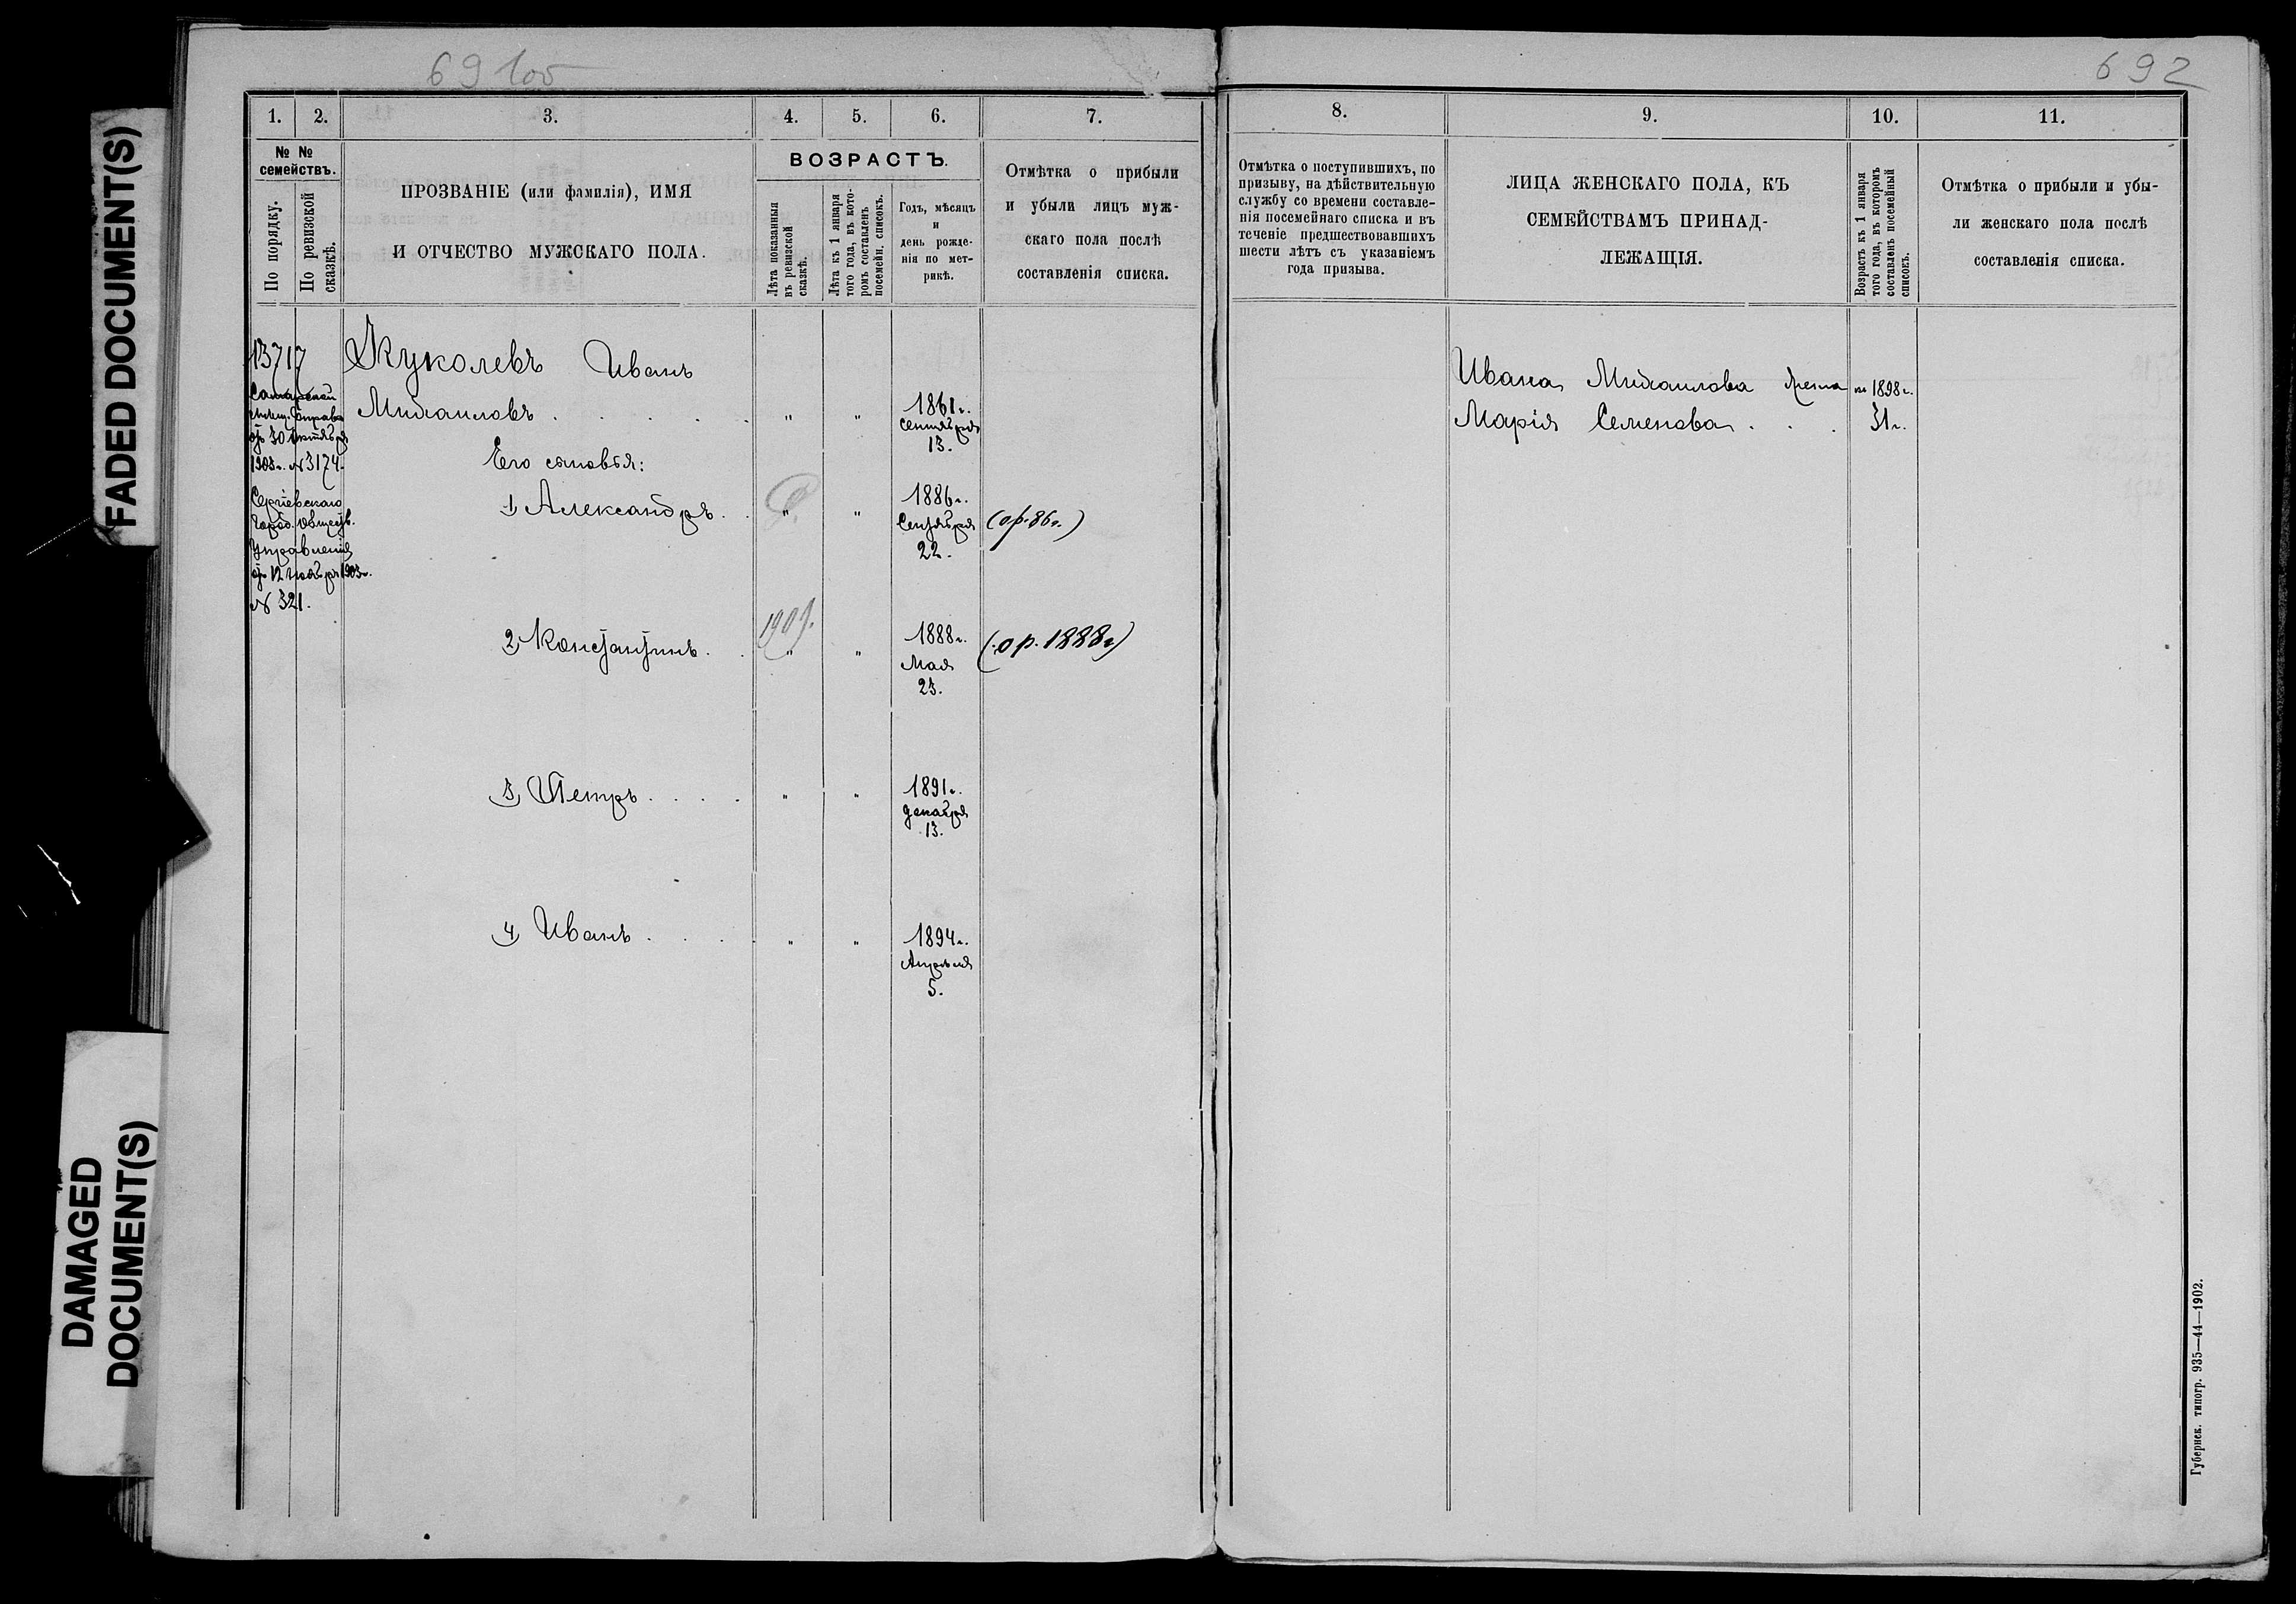 FADED DOCUMENT(S)
DAMAGED
DOCUMENT(S)
69 1об
1.
2.
3.
4.
5.
6.
7.
№ №
семействъ.
По порядку.
По ревизской
сказкѣ.
ПРОЗВАНІЕ (или фамилія), ИМЯ
И ОТЧЕСТВО МУЖСКАГО ПОЛА.
ВОЗРАСТЪ.
Лѣта показанныя
въ ревизской
сказкѣ.
Лѣта къ 1 января
того года, въ кото-
ромъ составленъ
посемейн. списокъ.
Годъ, мѣсяцъ
и
день рожде-
нія по мет-
рикѣ.
Отмѣтка о прибыли
и убыли лицъ муж-
скаго пола послѣ
составленія списка.
13717
Самарской
мѣщ. Управы
отъ 30 Октября
1903 г. № 3174.
Сергіевскаго
Город. Обществ.
Управленія
отъ 12 Ноября 1903 г.
№ 321.
Жуколевъ Иванъ
Михаиловъ . . . . . " " 1861 г.
Сентября
13.
Его сыновья:
1) Александръ . . " " 1886 г.
Сентября
22.
(ор. 86 г.)
1909.
2) Константинъ . . " " 1888 г.
Мая
23.
(ор. 1888 г)
3) Петръ . . . . " " 1891 г.
Декабря
13.
4) Иванъ . . . . " " 1894 г.
Апрѣля
5.
692
8.
9.
10.
11.
Отмѣтка о поступившихъ, по
призыву, на дѣйствительную
службу со времени составле-
нія посемейнаго списка и въ
теченіе предшествовавшихъ
шести лѣтъ съ указаніемъ
года призыва.
ЛИЦА ЖЕНСКАГО ПОЛА, КЪ
СЕМЕЙСТВАМЪ ПРИНАД-
ЛЕЖАЩІЯ.
Возрастъ къ 1 января
того года, въ которомъ
составленъ посемейный
списокъ.
Отмѣтка о прибыли и убы-
ли женскаго пола послѣ
составленія списка.
Ивана Михаилова жена въ 1898 г.
Марія Семенова . . . 31 г.
Губернск. типогр. 935—44—1902.